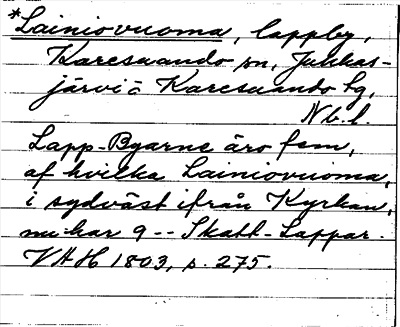 *Lainiovuoma, lappby,
Karesuando sn, Jukkas-
järvi o Karesuando tg,
Nb. l.
Lapp-Byarne äro fem,
af hvilka Lainiovuoma,
i sydväst ifrån Kyrkan,
nu har 9 -- Skatt-Lappar.
VAH 1803, s. 275.